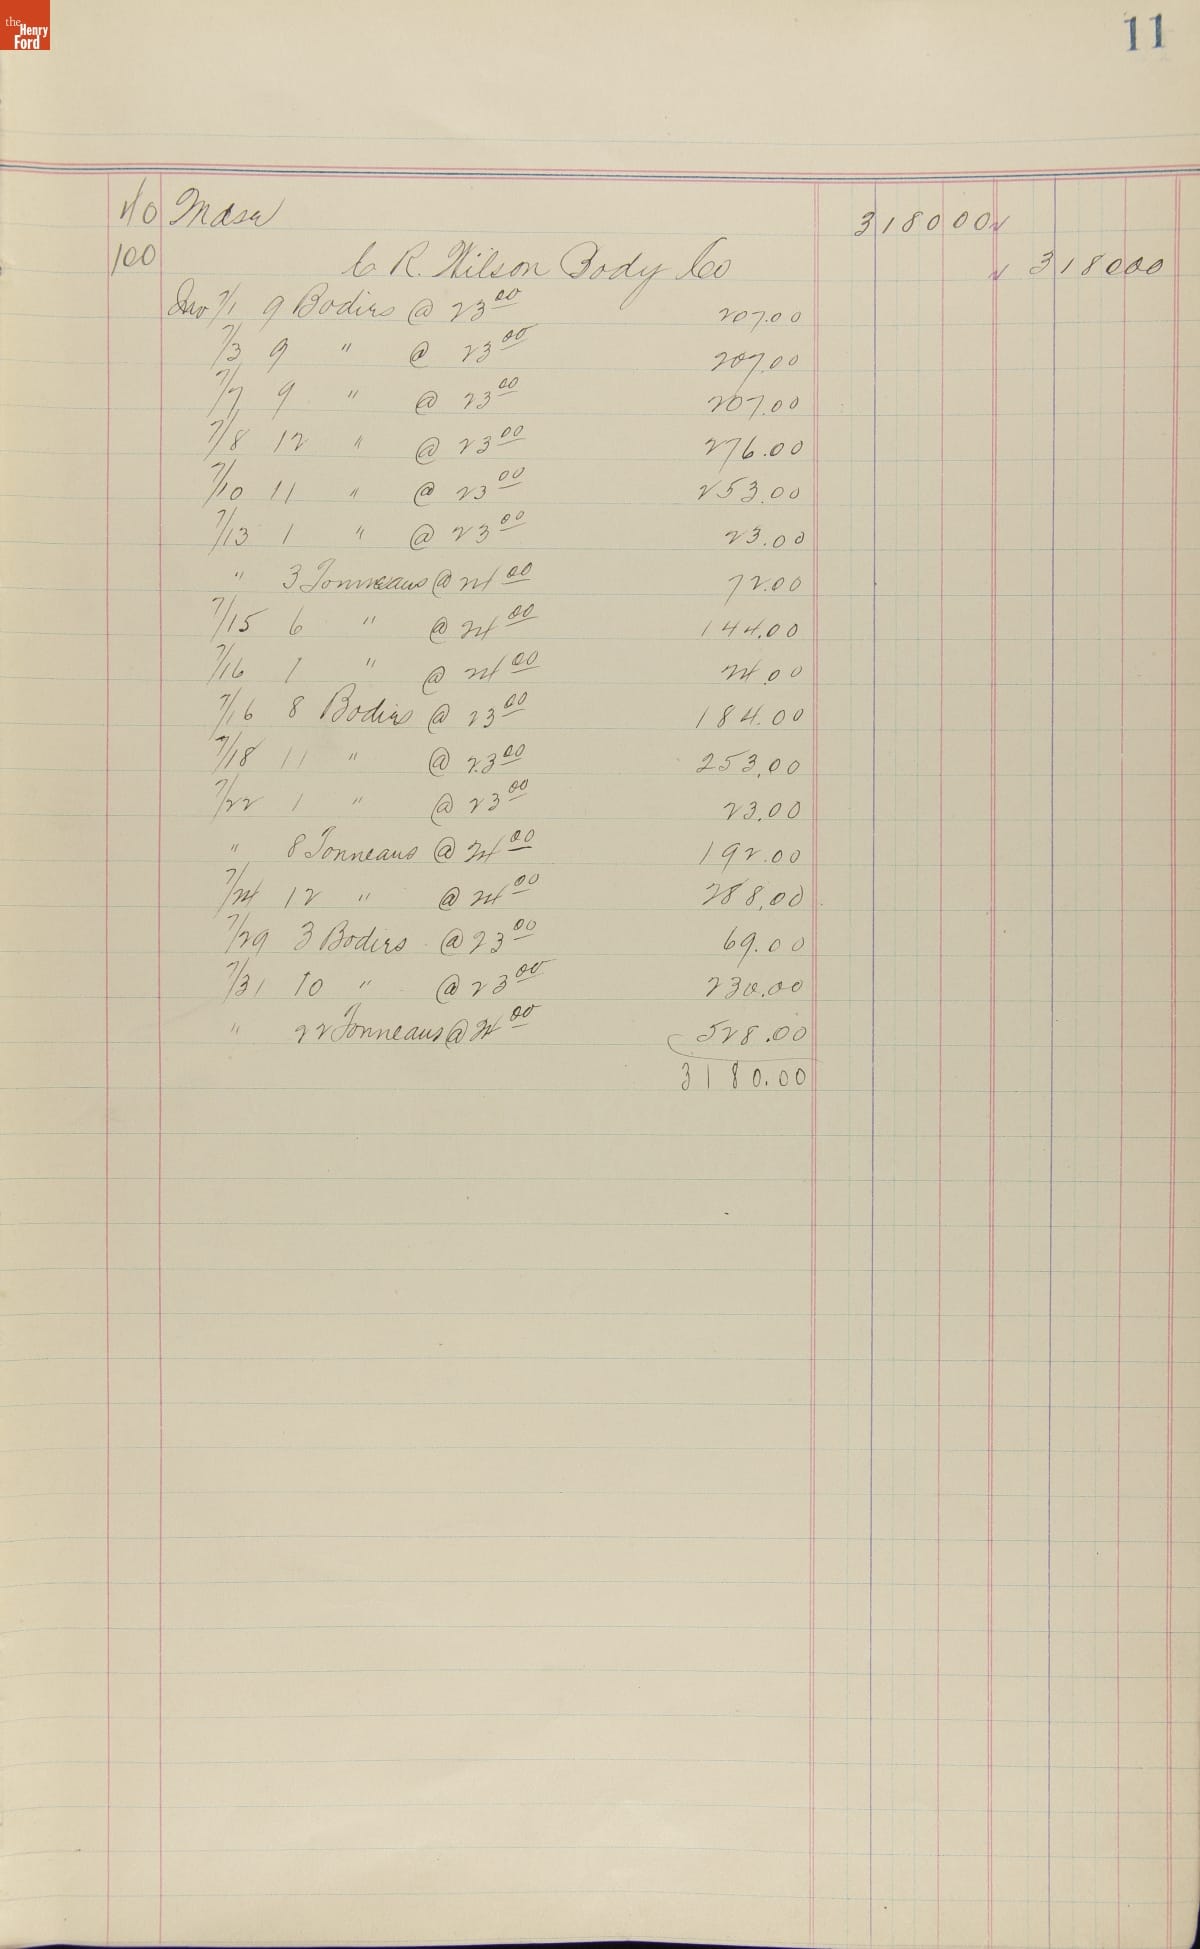 the Henry Ford
11
40 Mdse 318000
100 C R. Wilson Body Co 318000
Inv 7/1 9 Bodies @ 23 00 207.00
7/3 9 " @ 23 00 207.00
7/7 9 " @ 23 00 207.00
7/8 12 " @ 23 00 276.00
7/10 11 " @ 23 00 253.00
7/13 1 " @ 23 00 23.00
" 3 Tonneaus @ 24 00 72.00
7/15 6 " @ 24 00 144.00
7/16 1 " @ 24 00 24.00
7/16 8 Bodies @ 23 00 184.00
7/18 11 " @ 23 00 253.00
7/22 1 " @ 23 00 23.00
" 8 Tonneaus @ 24 00 192.00
7/24 12 " @ 24 00 288.00
7/29 3 Bodies @ 23 00 69.00
7/31 10 " @ 23 00 230.00
" 22 Tonneaus @ 24 00 528.00
3180.00